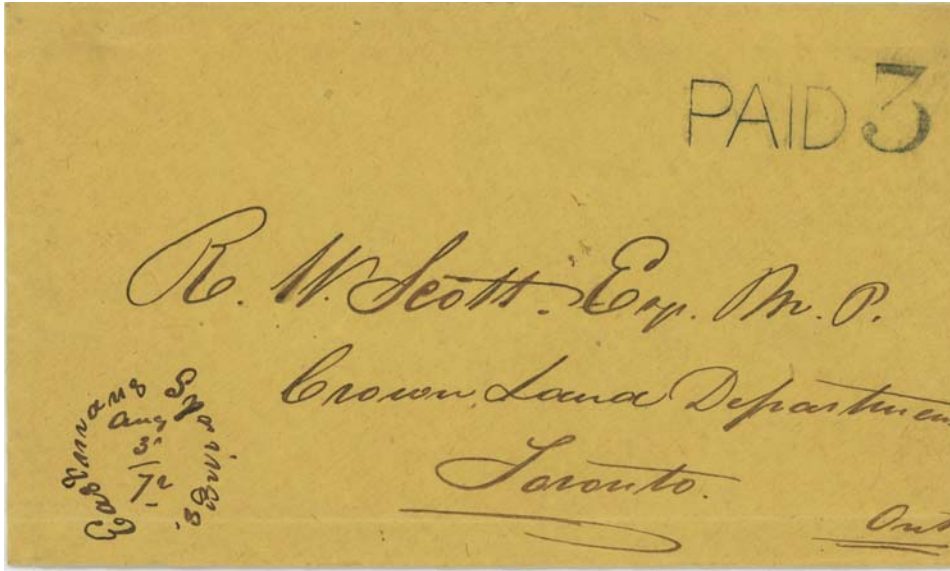 PAID 3
R. W. Scott. Esq. M. P.
Crown Land Departmen
Toronto.
Ont
Springs.
Aug
3
72